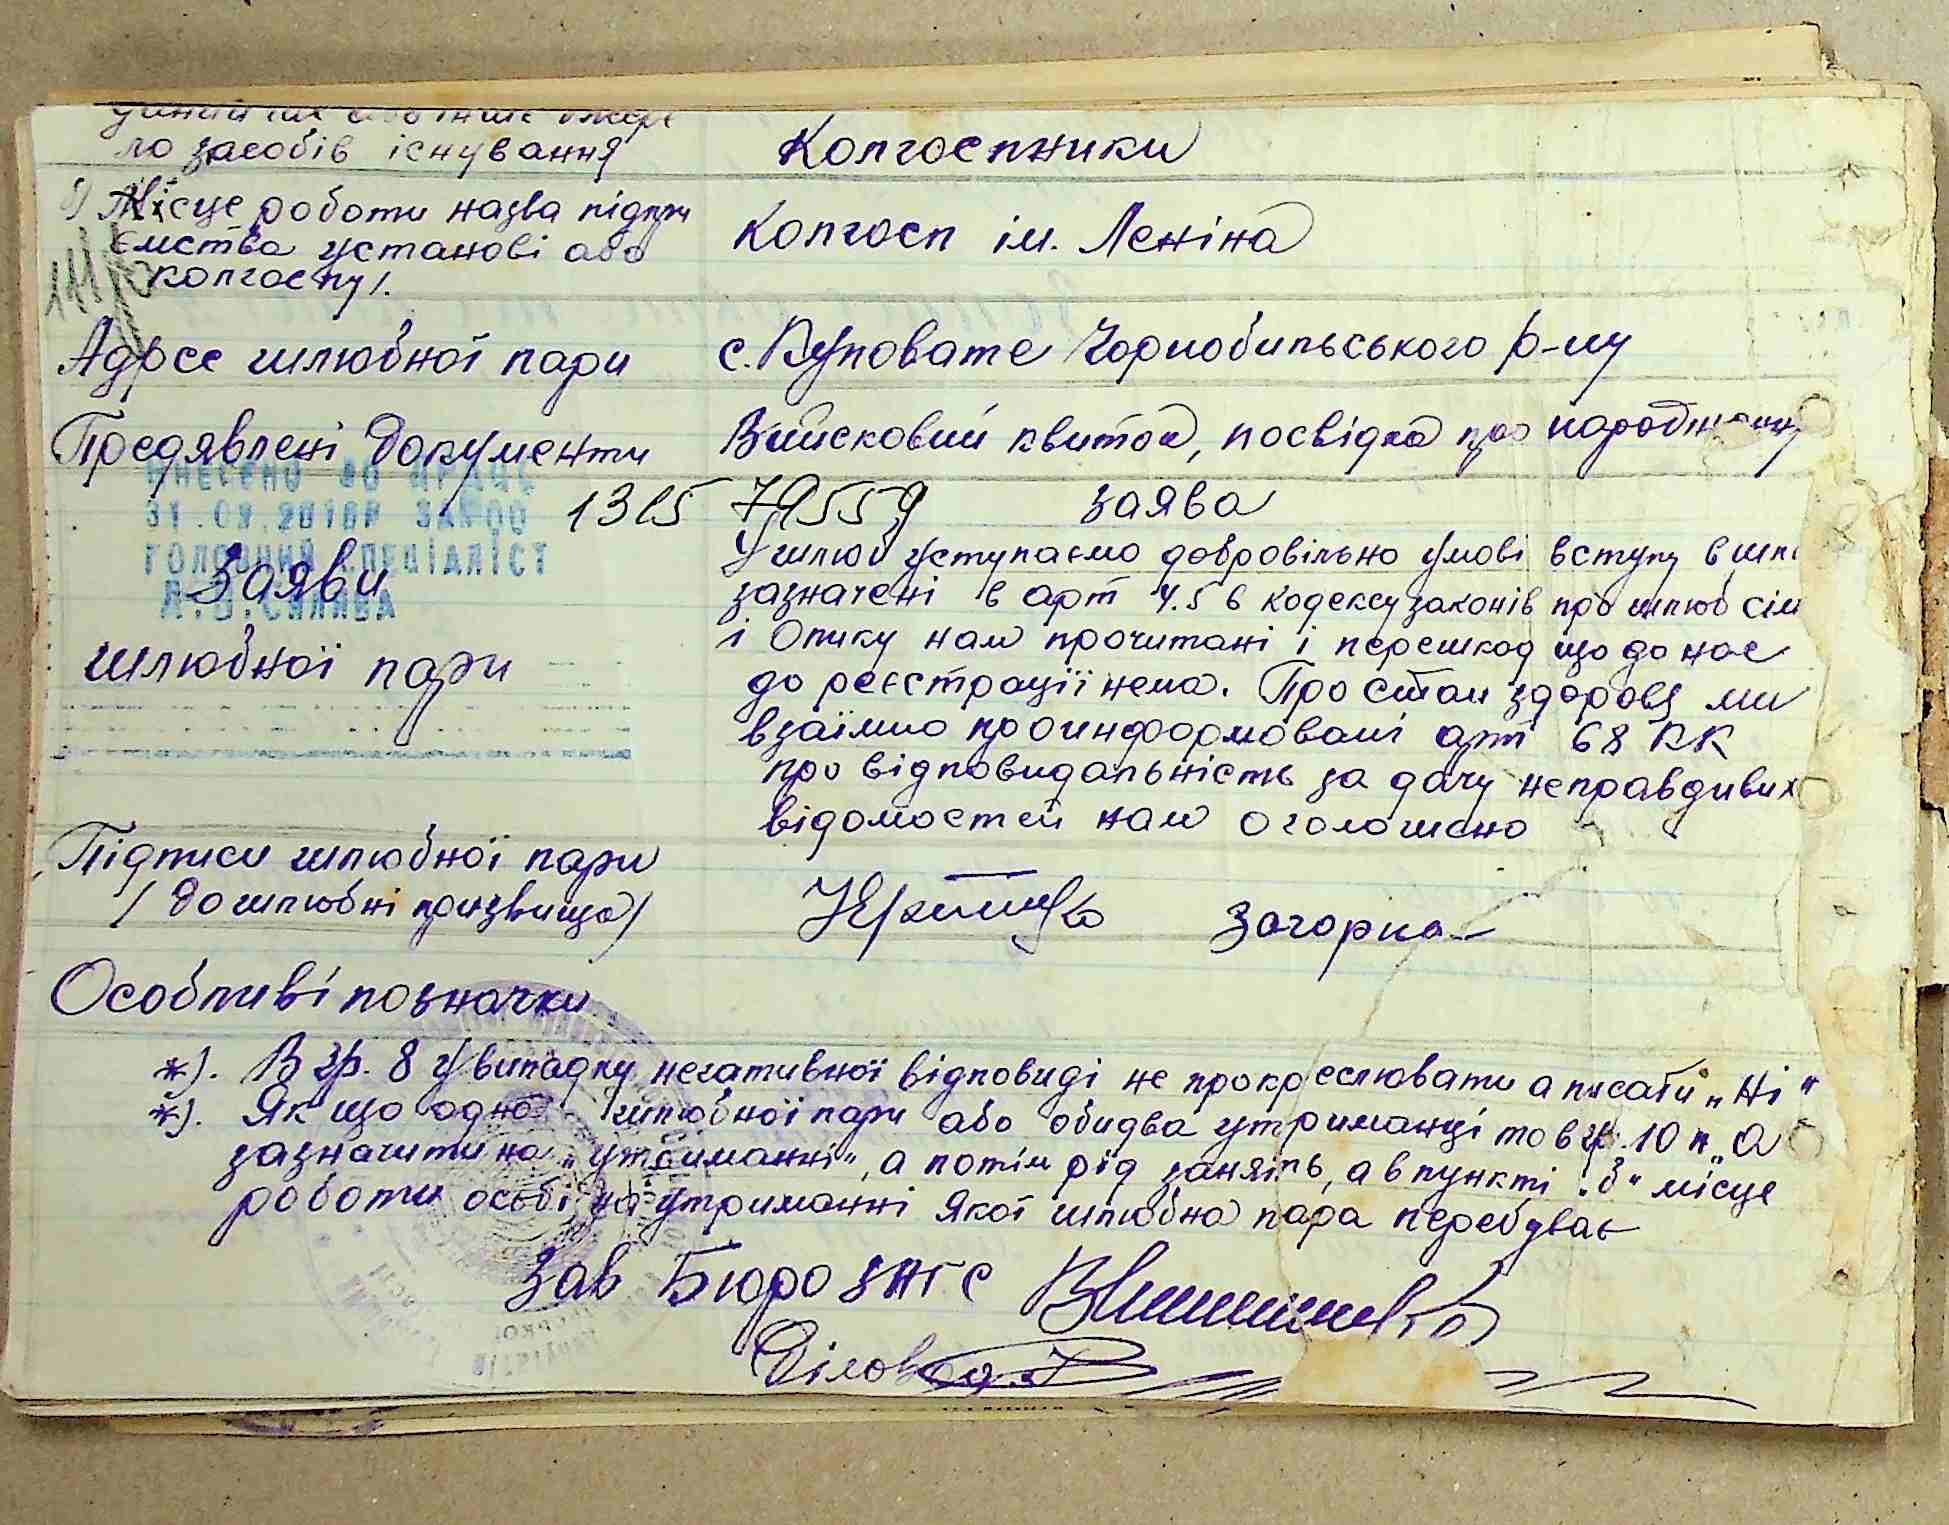 ло засобів існування
Колгоспники
б) Місце роботи назва підпри
ємства установі або
колгоспу/.
Колгосп ім. Леніна
Адрес шлюбної пари
с. Куповате Чорнобильського р-ну
Предявлені документи
Військовий квиток, посвідка про народження
ВНЕСЕНО ДО ДРАЦС
1315 79559
заява
ГОЛОВНИЙ СПЕЦІАЛІСТ
Заяви
шлюбної пари
У шлюб уступаємо добровільно умові вступу в шлю
зазначені в арт 4.5 6 кодексу законів про шлюб сім
і Опику нам прочитані і перешкод що до нас
до реєстрації нема. Про стан здоровя ми
взаїмно проинформовані арт 68 КК
про відповидальність за дачу неправдивих
відомостей нам оголошено
Підписи шлюбної пари
/ до шлюбні призвища/
Загорна
Особливі позначки
*). В гр. 8 у випадку негативної відповиді не прокреслювати а писати „Ні"
*). Якщо одно шлюбної пари або обидва утриманці то в гр. 10 п „а
зазначити на „утриманні", а потім рід занять, а в пункті „б" місце
роботи особі на утриманні якої шлюбна пара перебуває
Зав Бюро ЗАГС
Діловод